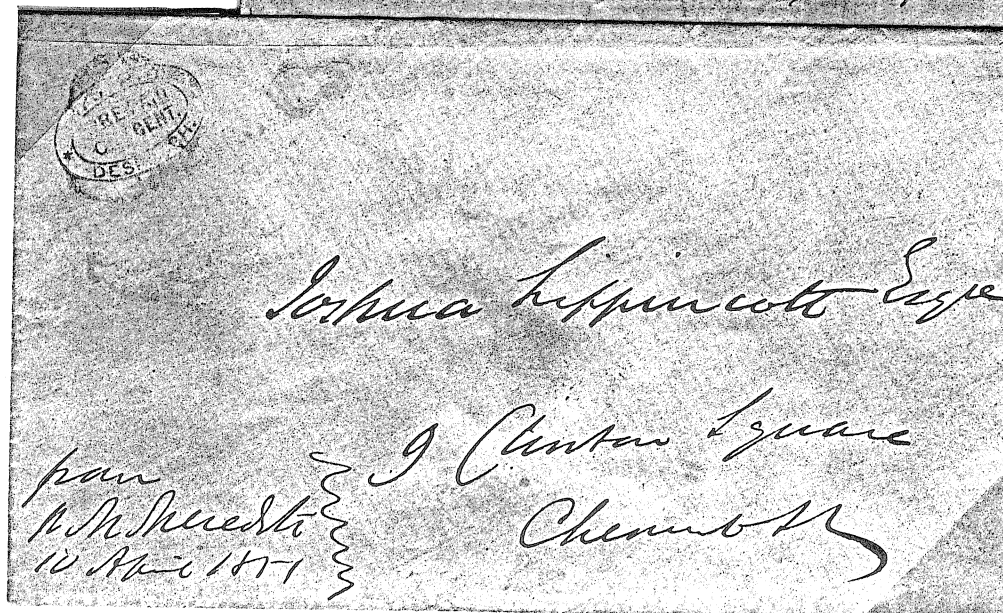 PRE
CENT.
DES CH.
Joshua Lippincott Esqre
9 Clinton Square
Chesnut St
from
Meredith
10 April 1851